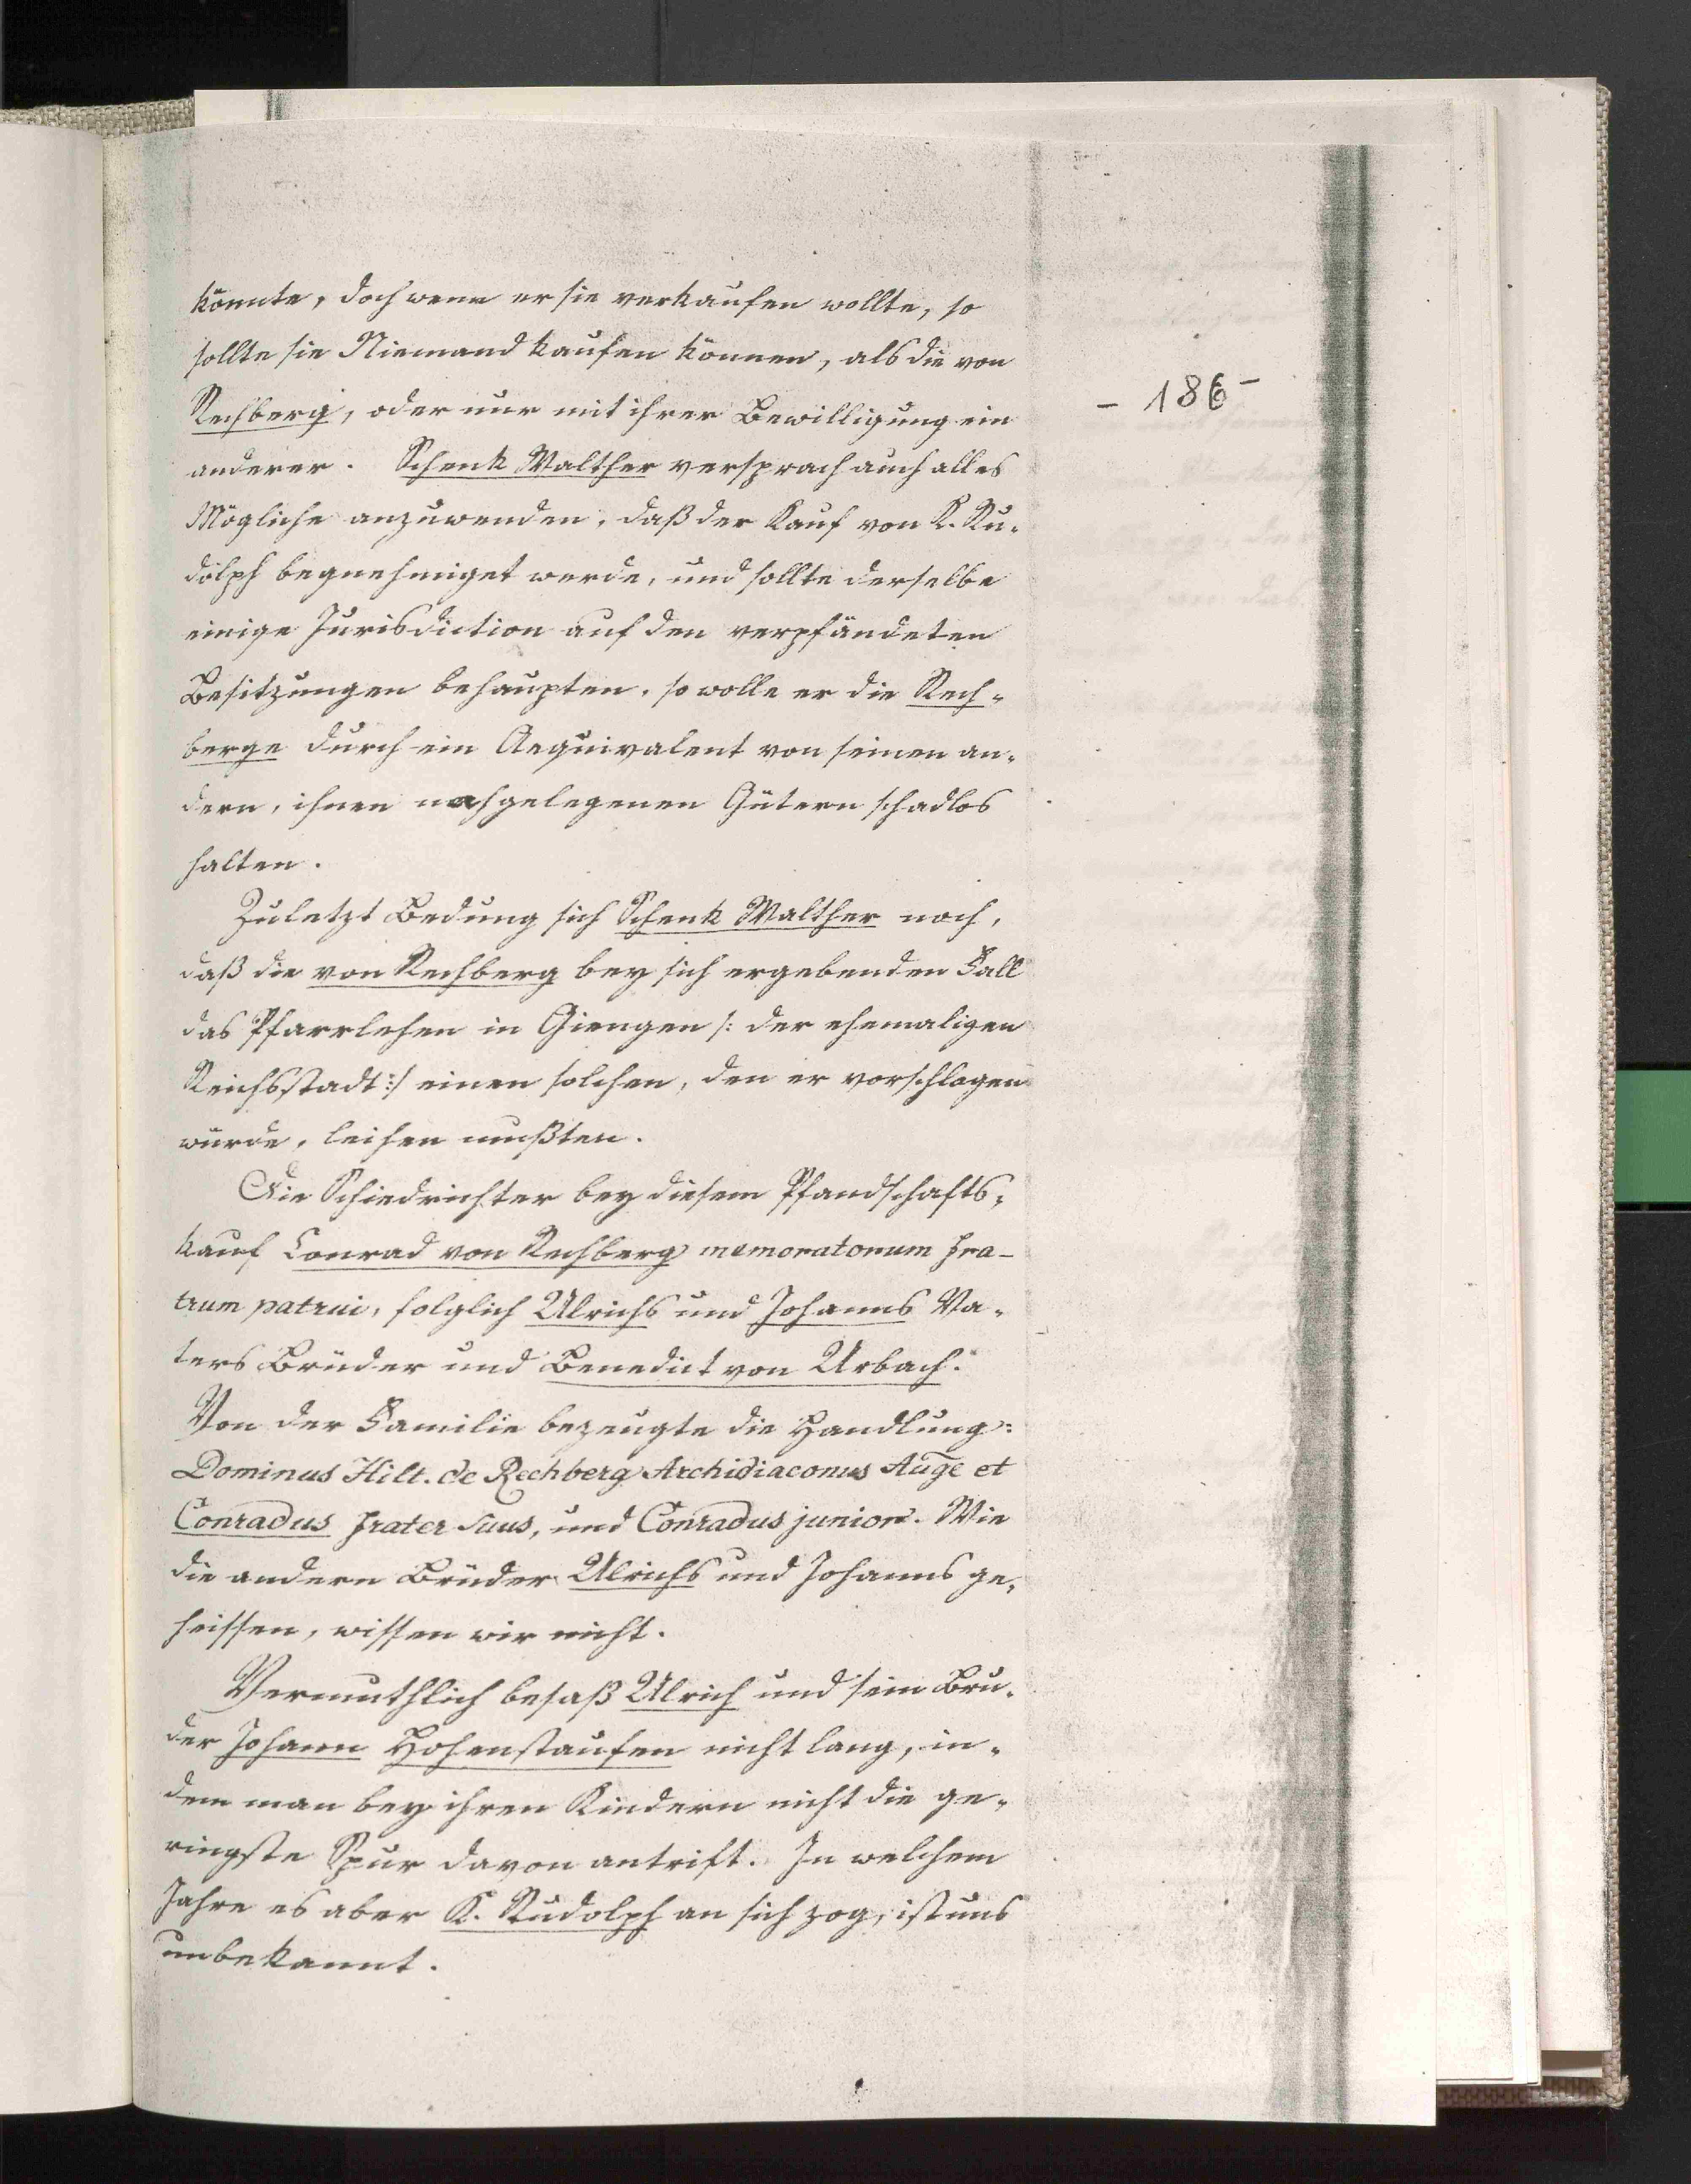 könnte, doch wenn er sie verkaufen wollte, so
sollte sie Niemand kaufen können, als die von
Rechberg, oder nur mit ihrer Bewilligung ein
- 186 -
anderer. Schenk Walther versprach auch alles
Mögliche anzuwenden, daß der Kauf von K. Ru-
dolph begnehmiget werde, und sollte derselbe
einige Jurisdiction auf den verpfändeten
Besitzungen behaupten, so wolle er die Rech-
berge durch ein Aequivalent von seinen an-
dern, ihnen nachgelegenen Gütern schadlos
halten.
Zuletzt Bedung sich Schenk Walther noch,
daß die von Rechberg bey sich ergebenden Fall
das Pfarrlehen in Giengen /: der ehemaligen
Reichsstadt :/ einen solchen, den er vorschlagen
würde, leihen mußten.
Die Schiedrichter bey diesem Pfandschafts-
kauf Conrad von Rechberg memoratorum fra-
trum patrui, folglich Ulrichs und Johanns Va-
ters Brüder und Benedict von Urbach.
Von der Familie bezeugte die Handlung:
Dominus Hilt. de Rechberg Archidiaconus Auge et
Conradus frater suus, und Conradus junior. Wie
die andern Brüder Ulrichs und Johanns ge-
heissen, wissen wir nicht.
Vermuthlich besaß Ulrich und sein Bru-
der Johann Hohenstaufen nicht lang, in-
dem man bey ihren Kindern nicht die ge-
ringste Spur davon antrift. In welchem
Jahre es aber K. Rudolph an sich zog, ist uns
unbekannt.